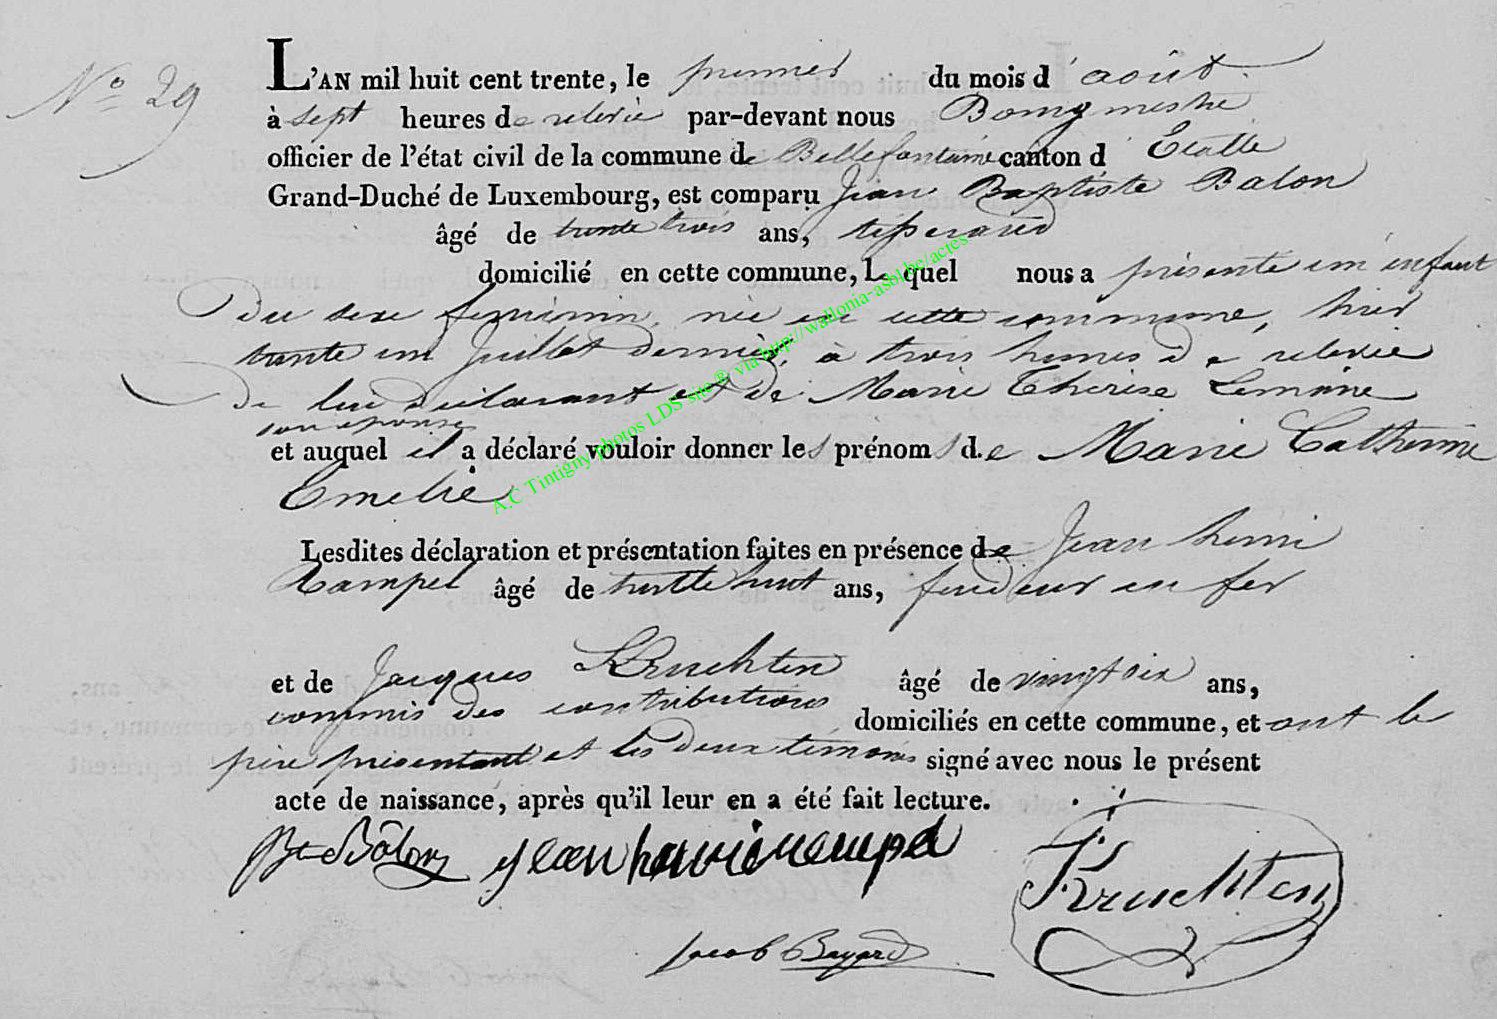 N° 29
L'AN mil huit cent trente, le premier du mois d'août
à sept heures de relevée par-devant nous Bourgmestre
officier de l'état civil de la commune de Bellefontaine canton d'Etalle
Grand-Duché de Luxembourg, est comparu Jean Baptiste Balon
âgé de trente trois ans, tisserand
domicilié en cette commune, Lequel nous a présenté un enfant
du sexe féminin, née en cette commune, hier
trente un Juillet dernier, à trois heures de relevée
de lui déclarant et de Marie Thérèse Lemoine
son épouse
et auquel il a déclaré vouloir donner les prénoms de Marie Catherine
Emelie
Lesdites déclaration et présentation faites en présence de Jean henri
âgé de trente huit ans, fondeur en fer
et de Jacques Kruchten âgé de vingt six ans,
commis des contributions domiciliés en cette commune, et ont le
père présentant et les deux témoins signé avec nous le présent
acte de naissance, après qu'il leur en a été fait lecture.
Bte Bâlon jean henri
Kruchten
Jacob Bayard
A.C Tintigny photos LDS site ® via http://wallonia-asbl.be/actes